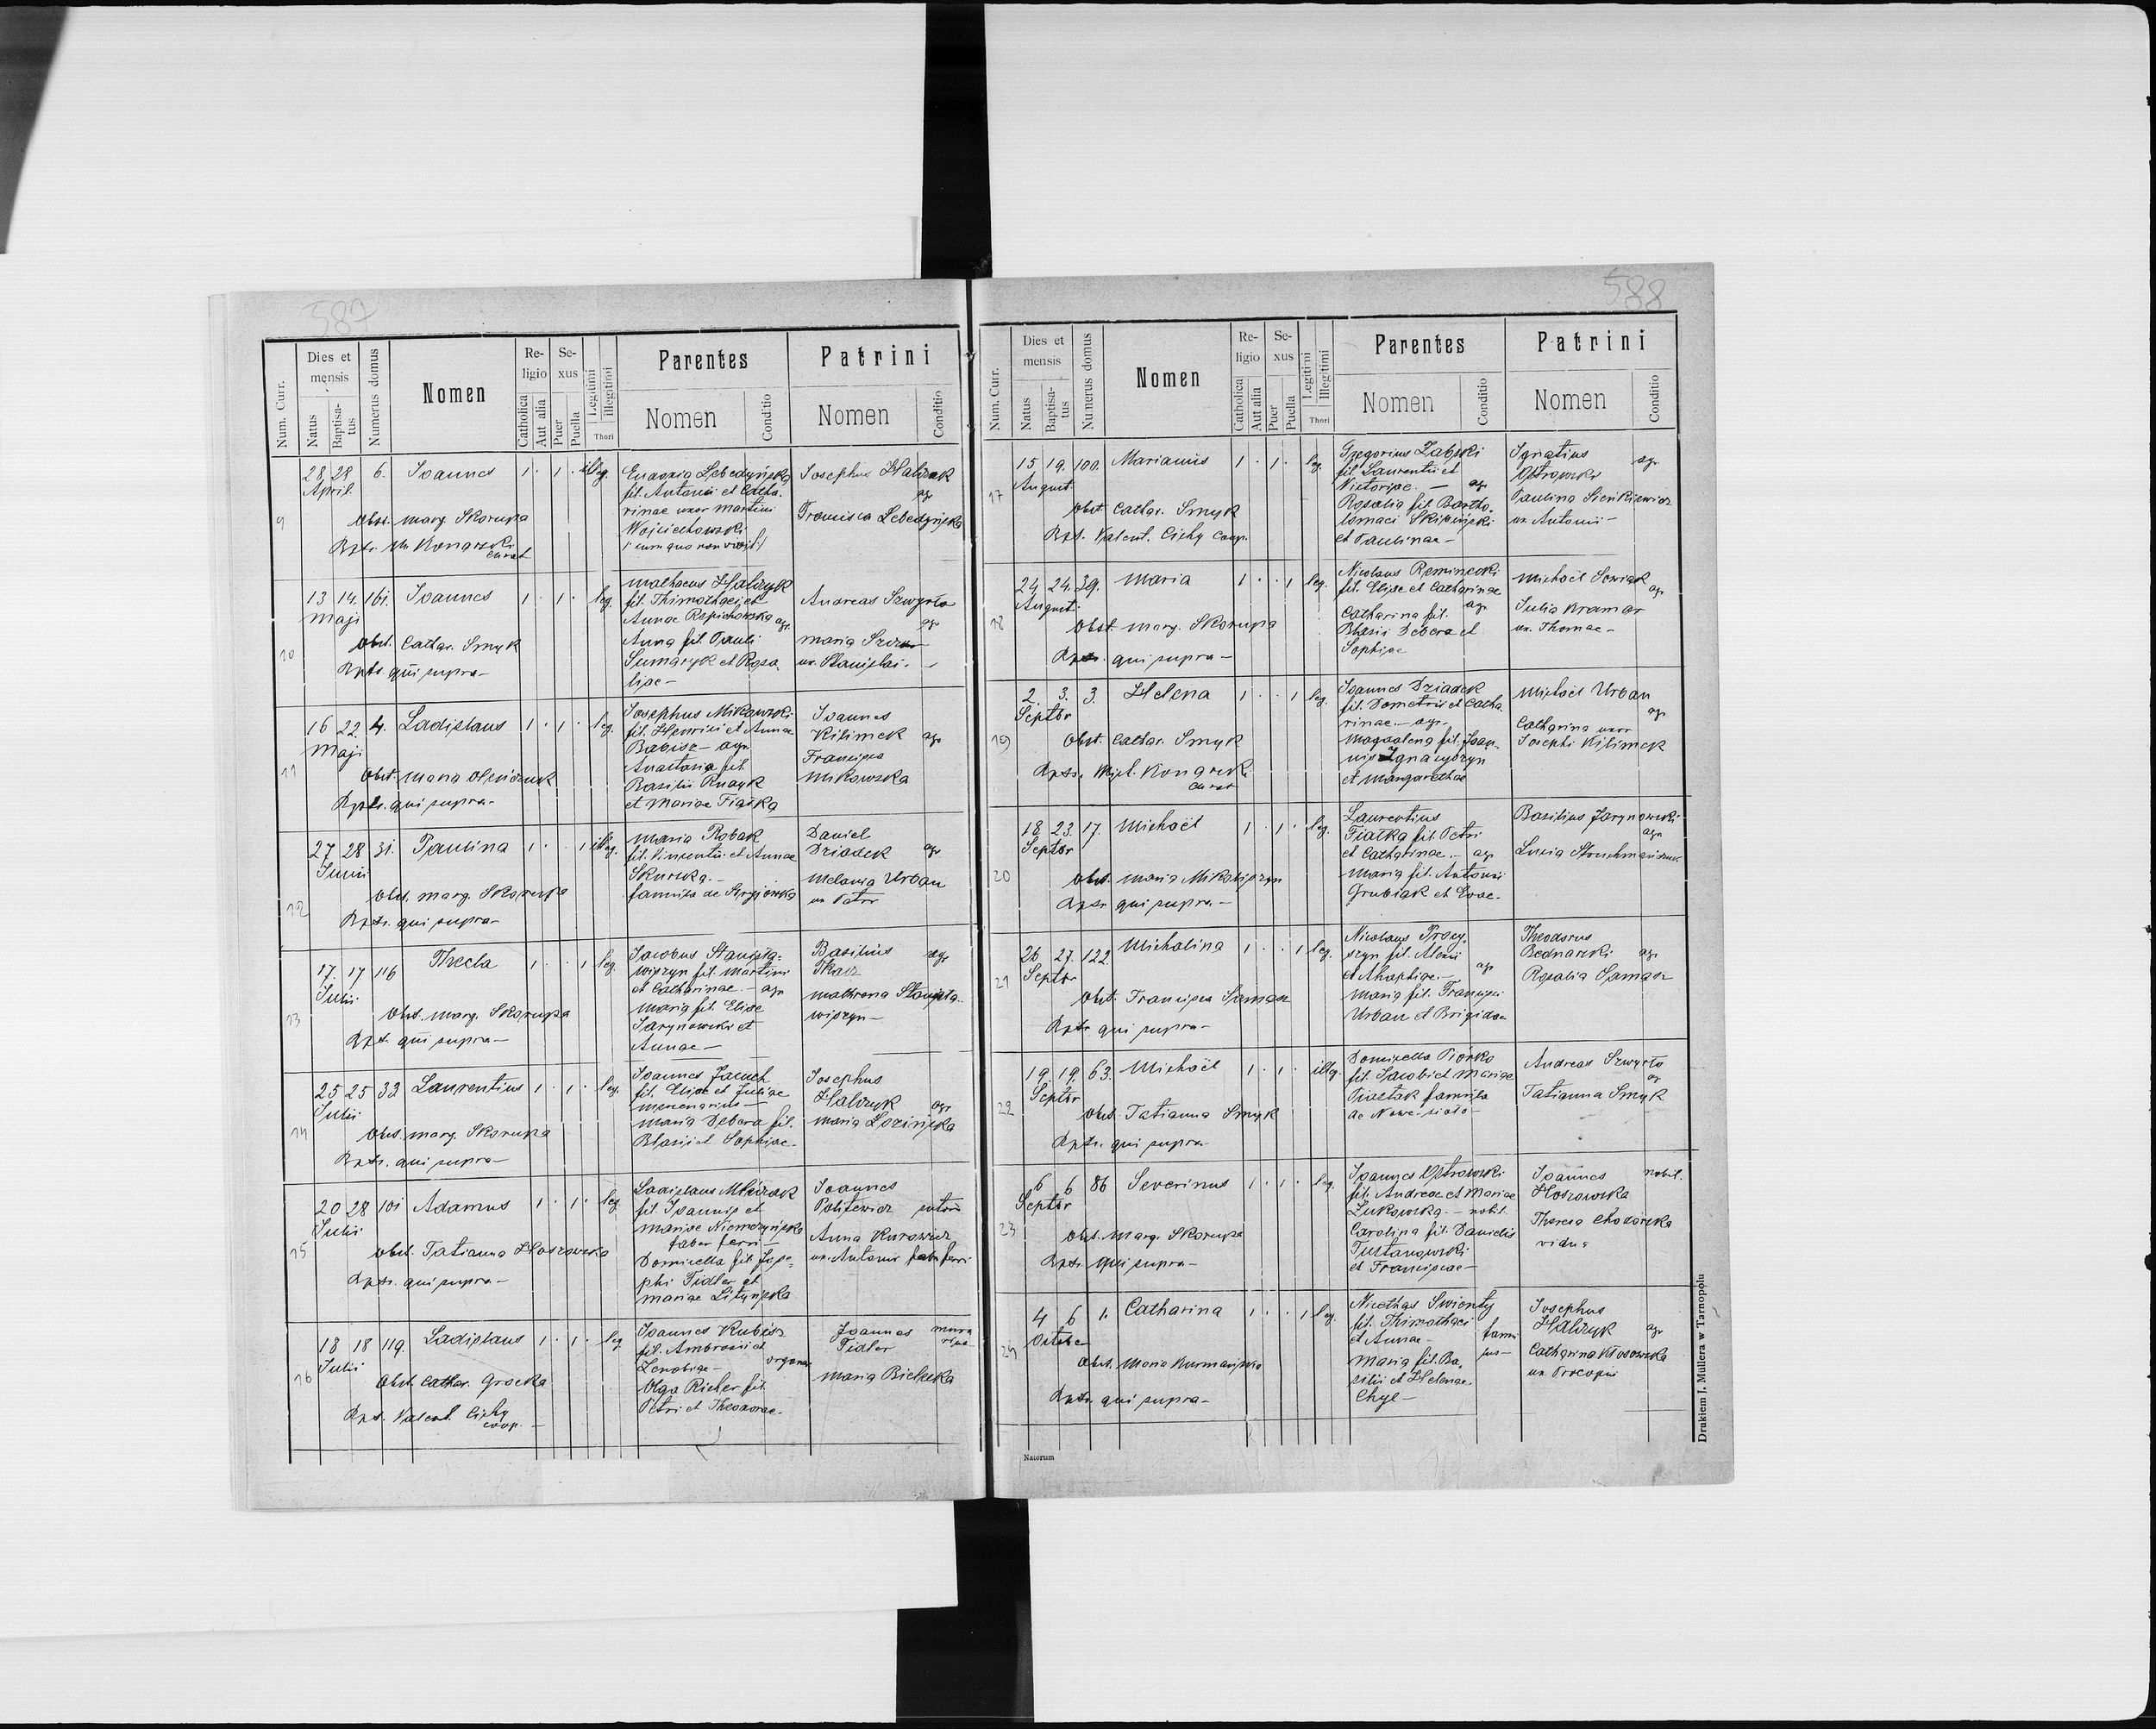 587
Num. Curr. Dies et mensis Numerus domus Nomen Religio Sexus Legitimi Illegitimi Parentes Patrini
Natus Baptisatus Catholica Aut alia Puer Puella Thori Nomen Conditio Nomen Conditio
9 28 28 6. Joannes 1 · 1 · illeg. Josephus Halczak
April. fil. Antonii et Catha- agr
rinae uxor Martini Francisca Lebedyńska
Obst. Marg. Skorupa Wojciechowski
Bpts. Konarski
curat
10 13 14. 161. Joannes 1 · 1 · leg. Mathaeus Halczyk
Maji fil. Thimothaei et Andreas Szwyrło
Annae agr. agr
Obst. Cathar. Smyk Anna fil. Pauli Maria
Bpts. qui supra— Sumaryk et Rosa- ux. Stanislai. —
liae—
11 16 22 4. Ladislaus 1 · 1 · leg. Josephus Mikowski Joannes
Maji fil. Henrici et Annae Kilimek agr
Babisz — agr. Francisca
Obst. Maria Anastasia fil. Mikowska
Bpts. qui supra— Basilii
et Mariae Fiałka
12 27 28 31. Paulina 1 · · 1 illeg. Maria Robak Daniel
Junii fil. Vincentii et Annae Dziadek agr
Skurska.— Melania Urban
Obst. Marg. Skorupa famula de ux Petri
Bpts. qui supra—
13 17. 17 116 Thecla 1 · · 1 leg. Jacobus Stanisła- Basilius agr
Julii wiszyn fil. Martini Tkacz
et Catharinae.— agr Mathrona Stanisła-
Obst. Marg. Skorupa Maria fil. Eliae wiszyn—
Bpts. qui supra— Jarynowski et
Annae—
14 25 25 32 Laurentius 1 · 1 · leg. Joannes Jaruch Josephus
Julii fil. Eliae et Juliae Halczyk agr
mercenarius— Maria Łozińska
Obst. Marg. Skorupa Maria Debera fil.
Bpts. qui supra— Blasii et Sophiae—
15 20 28 101 Adamus 1 · 1 · leg Ladislaus Joannes
Julii fil Joannis et Politewicz sutor
Mariae Niemczyńska Anna Kurowicz
Obst. Tatianna Hoszowska faber ferri— ux. Antonii fabri ferri
Bpts. qui supra— Domicella fil Jose-
phi Fidler et
Mariae Lityńska
16 18 18 119. Ladislaus 1 · 1 · leg Joannes Kubisz Joannes
Julii fil. Ambrosii et Fidler
Zenobiae— Maria Bielecka
Obst. Cathar. Grocka Olga Richer fil.
Bpts. Valent. Cichy Petri et Theodorae.
coop. —
588
Num. Curr. Dies et mensis Numerus domus Nomen Religio Sexus Legitimi Illegitimi Parentes Patrini
Natus Baptisatus Catholica Aut alia Puer Puella Thori Nomen Conditio Nomen Conditio
17 15 19. 100. Marianus 1 · 1 · leg. Gregorius Zabski Ignatius agr
August. fil. Laurentii et Ostrowski
Victoriae. — agr Paulina Sienkiewicz
Obst. Cathar. Smyk Rosalia fil. Bartho- ux. Antonii—
Bpts. Valent. Cichy coop. lomaei Skibiński
et Paulinae—
18 24 24. 39. Maria 1 · · 1 leg. Nicolaus Reminecki Michaël
August. fil. Eliae et Catharinae agr
agr Julia Kramar
Obst. Marg. Skorupa Catharina fil. ux. Thomae—
Bpts. qui supra— Blasii Debera et
Sophiae
19 2. 3. 3. Helena 1 · · 1 leg. Joannes Dziadek Michaël Urban
Septbr fil. Demetrii et Catha- agr
rinae.— agr— Catharina uxor
Obst. Cathar. Smyk Magdalena fil. Joan- Josephi Kilimek
Bpts. Mich. Konarski nis Ignacyszyn
curat et Margarethae
20 18 23. 17. Michaël 1 · 1 · leg. Laurentius Basilius Jarynowski
Septbr Fiałka fil. Petri agr
et Catharinae.— agr Lucia
Obst. Maria Maria fil. Antonii
Bpts qui supra.— Grubiak et Evae—
21 26 27. 122. Michalina 1 · · 1 leg. Nicolaus Theodorus
Septbr fil. Alexii Bednarski agr
agr Rosalia Samasz
Obst. Francisca Samasz Maria fil. Francisci
Bpts qui supra— Urban et Brigidae
22 19. 19. 63. Michaël 1 · 1 · illeg. Domicella Piórko Andreas Szwyrło
Septbr fil. Jacobi et Mariae agr
Obst. Tatianna Smyk famula Tatianna Smyk
Bpts. qui supra— de Nowe-sioło—
23 6 6 86 Severinus 1 · 1 · leg. Joannes Ostrowski Joannes nobil.
Septbr fil. Andreae et Mariae Hoszowski
Żukowska.— nobil.
Obst. Marg. Skorupa Carolina fil. Danielis vidua
Bpts qui supra— Tustanowski
et Franciscae—
24 4 6 1. Catharina 1 · · 1 leg. Nicethas Swienty Josephus
Octobr fil. Thimothaei Halczyk agr
et Annae— famu Catharina Kłosowska
Obst. Maria Maria fil. Ba- lus— ux. Procopii
Bpts. qui supra— silii et Helenae
Chyl—
Natorum
Drukiem J. Müllera w Tarnopolu